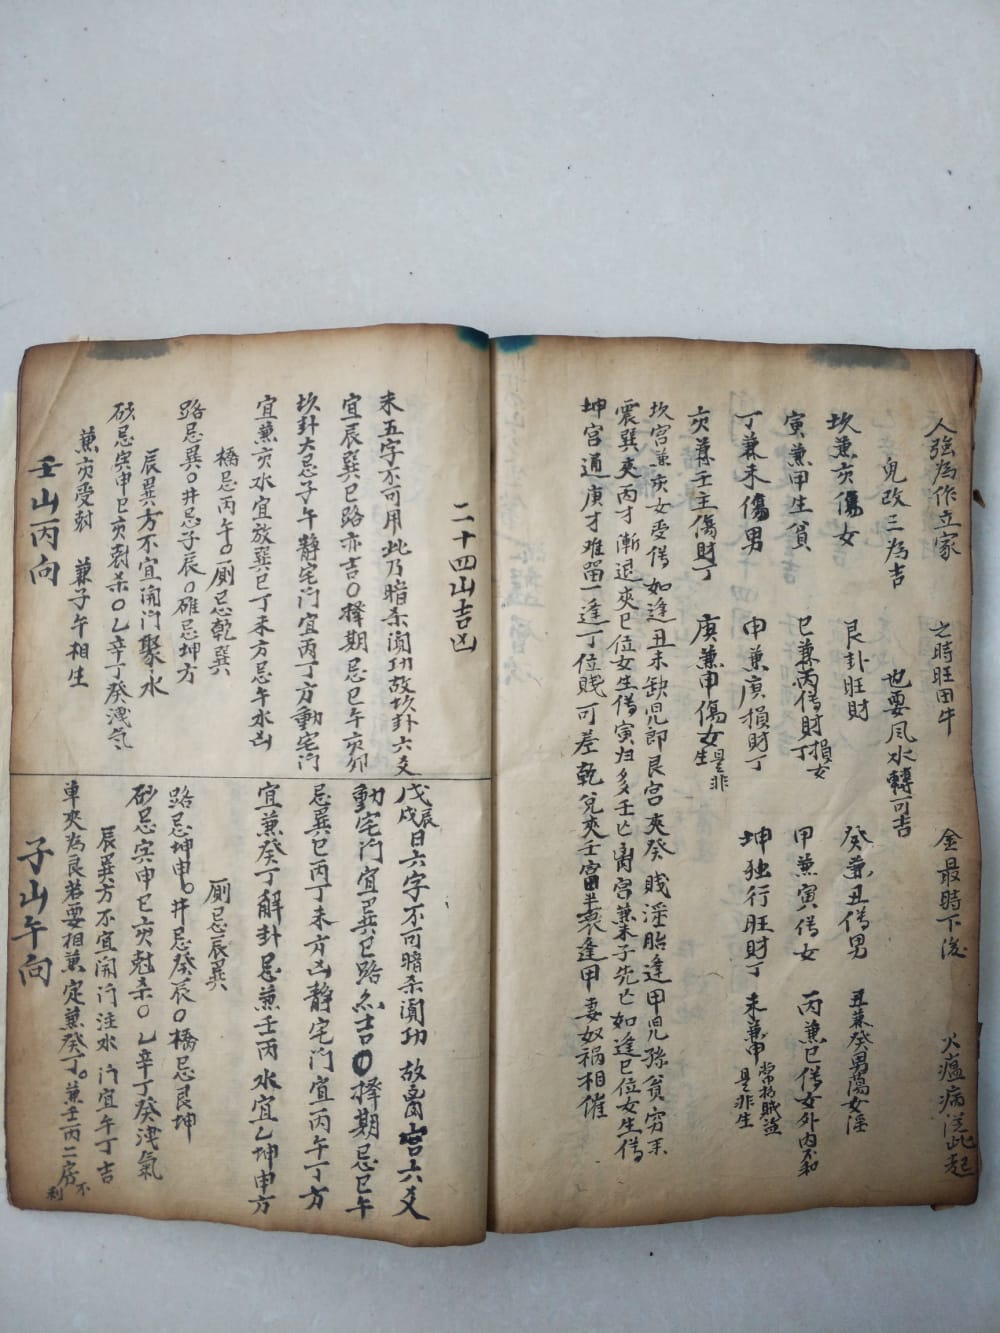 人強為作立家 之時旺田牛 金最時下淩 火瘟病從此起
兒改三為吉 也要風水轉可吉
坎兼亥傷女 艮卦旺財 癸兼丑傷男 丑兼癸男蕩女淫
寅兼甲生貧 巳兼丙傷財丁損女 甲兼寅傷女 丙兼巳傷女外内不和
丁兼未傷男 申兼庚損財丁 坤独行旺財丁 未兼申常招賊盜是非生
亥兼壬主傷財丁 庚兼申傷女是非生
坎宮兼亥女受傷 如逢丑未缺児郎 艮宮夾癸賤淫胎 逢甲児孫貧穷
震巽夾丙才漸退 夾巳位女生傷 寅归多壬亡 离宮兼子先亡 如逢巳位女生傷
坤宮通庚才难留 一逢丁位賤可差 乾兌夾壬富半衰 逢甲妻奴禍相催
二十四山吉凶
未五字不可用 此乃暗杀 故坎卦六爻
宜辰巽巳路亦吉〇擇期忌巳午亥卯
坎卦大忌子午 靜宅门宜丙丁方 動宅门
宜兼亥水宜放巽巳丁未方忌午水凶
橋忌丙午〇厠忌乾巽
路忌巽〇井忌子辰〇碓忌坤方
辰巽方不宜開门聚水
砂忌寅申巳亥尅杀〇乙辛丁癸洩气
兼亥受尅 兼子午相生
壬山丙向
戊辰戌日六字不可暗杀 故离宮六爻
動宅门宜巽巳路亦吉〇擇期忌巳午
忌巽巳丙丁未方凶 靜宅门宜丙午丁方
宜兼癸丁解卦忌兼壬丙 水宜乙坤申方
厠忌辰巽
路忌坤申〇井忌癸辰〇橋忌艮坤
砂忌寅申巳亥尅杀〇乙辛丁癸洩氣
辰巽方不宜開门注水 门宜午丁吉
車夾為艮若要相兼定兼癸丁〇兼壬丙二房不利
子山午向